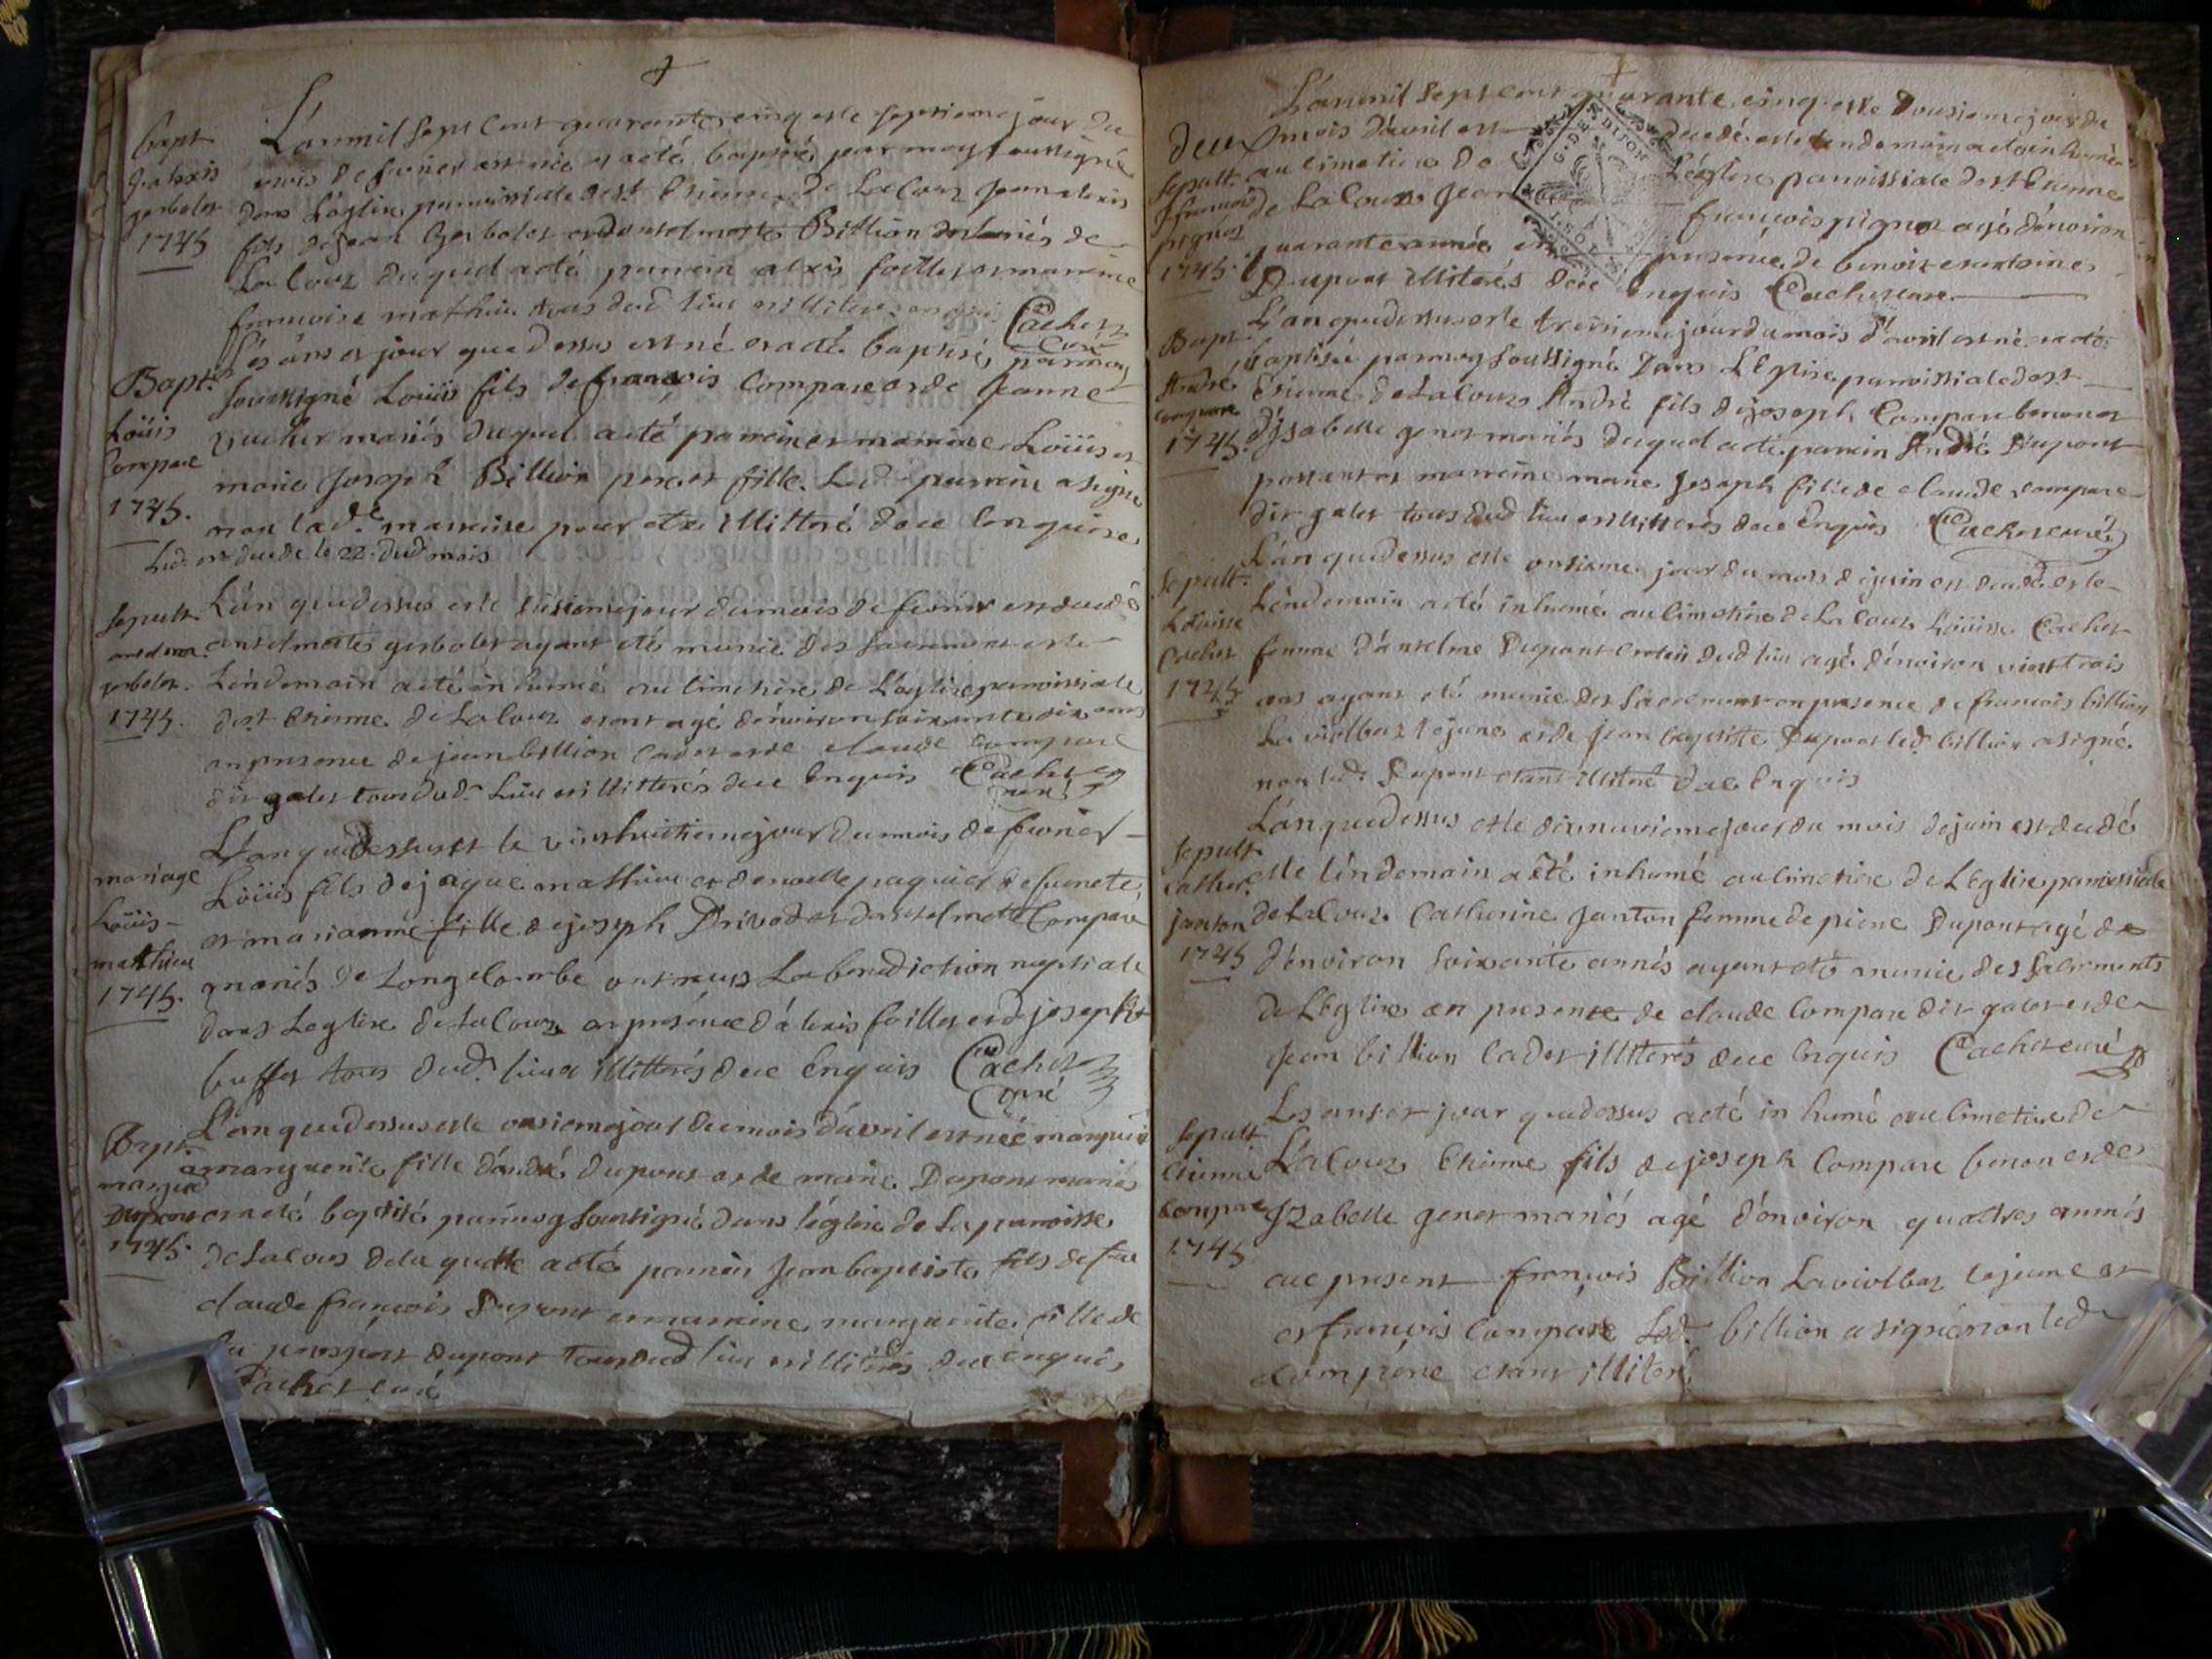 bapt
j. alexis
gerbolet
1745
L'an mil sept cent quarante cinq et le septieme jour du
mois de fevrier est né et a eté baptisé par moy soussigné
dans L'eglise parroissiale de st Etienne de Lacoux jean alexis
fils de jean Gerbolet et d'antelmette Billion mariés de
Lacoux duquel a eté parrein alexis foillet et marreine
francoise mathieu tous dud lieu et illiteres enquis Cachet
curé
Bapt.
Loüis
Compare
1745.
Les ans et jour que dessus est né et a eté baptisé par moy
soussigné Loüis fils de francois Compare et de jeanne
mariés duquel a eté parrein et marreine Loüis et
marie Joseph Billion pere et fille. Led. parrein a signé
non lad.e marreine pour etre illitteré de ce enquise
Led. est decede le 22. dud. mois
sepult.
gerbolet.
1745.
L'an que dessus et le jour du mois de fevrier est decedé
antelmette gerbolet ayant eté munie des sacrement et le
Lendemain a eté inhumé au cimetiere de L'eglise parroissiale
de st Etienne de Lacoux etant agé d'environ soixante dix ans
en presence de jean billion cadet et de claude compare
dit galet tous dud. Lieu et illitterés de ce Enquis Cachet
curé
mariage
Loüis
mathieu
1745.
L'an que dessus et le vint huitieme jour du mois de fevrier
Loüis fils de jaque mathieu et de noelle paquier defunete
et marianne fille de joseph Drivodet d'antelmette Compare
mariés de Longecombe ont recus La benediction nuptiale
dans Leglise de Lacoux en présence d'alexis foillet et de joseph
buffet tous dud. lieu et illitterés de ce Enquis Cachet
Curé
Bapt.
margue
Dupont
1745.
L'an que dessus et le onsieme jour du mois d'avril est née marguerite
marguerite fille d'andré dupont et de marie Dupont mariés
et a eté baptisé par moy soussigné dans l'église de la parroisse
de Lacoux de laquelle a eté parrein Jean baptiste fils de feu
claude françois Dupont et marreine marguerite fille de
feu prospert dupont tous dud lieu et illiterés de ce enquis
Cachet curé
L'an mil sept cent quarante cinq et le dousieme jour du
deux mois d'avril est decedé et le lendemain a eté inhumé
sepult.
j francois
pignet
1745.
au cimetiere de L'église parroissiale de st Etienne
G. DE DIJON
de Lacoux Jean françois pignet agé d'environ
quarante années en présence de benoit et antoine
Dupont illiterés de ce Enquis Cachet curé
Bapt
André
compare
1745.
L'an que dessus et le treisieme jour du mois d'avril est né et a eté
baptisé par moy soussigné Dans L'Eglise parroissiale de st
Etienne de Lacoux André fils de joseph Compare benon et
d'jsabelle genet mariés duquel a eté parrein André Dupont
et marreine marie joseph fille de claude compare
dit galet tous dud lieu et illitterés de ce Enquis Cachet curé
Sepult.
Loüise
Cachet
1745
L'an que dessus et le onsieme jour du mois de juin est decedé et le
Lendemain a eté inhumé au cimetiere de Lacoux Loüise Cachet
femme d'antelme Dupont dud lieu agé d'environ vint trois
ans ayant eté munie des sacremens en presence de francois billion
La violbaz lejeune et de jean baptiste Dupont led. billion a signé
non led. Dupont etant illiteré de ce Enquis
sepult
catherine
janton
1745
L'an que dessus et le dixneuvieme jour du mois de juin est decedé
et le lendemain a été inhumé au cimetiere de L'Eglise parroissiale
de Lacoux Catherine janton femme de pierre Dupont agé de
d'environ soixante années ayant eté munie des sacrements
de L'Eglise en presence de claude Compare dit galet et de
jean billion cadet illiterés de ce Enquis Cachet curé
sepult
Etienne
Compare
1745
Les ans et jour que dessus a eté inhumé au cimetiere de
Lacoux Etienne fils de joseph Compare benon et de
Jzabelle genet mariés agé d'environ quattres années
ce present françois Billion Laviolbaz lejeune et
et françois Compare Led. billion a signé non led
compare etant illiteré